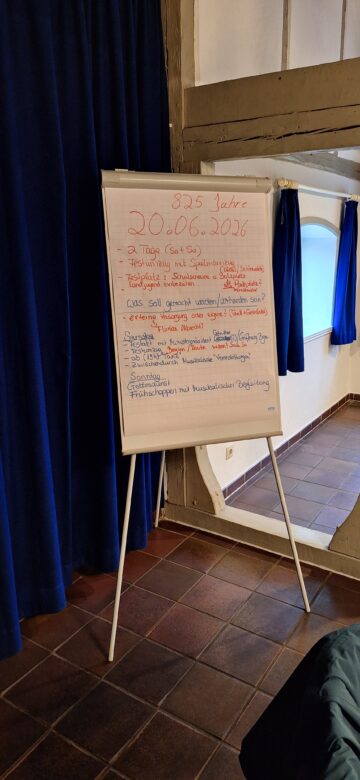 825 Jahre
20.06.2026
- 2 Tage (Sa + So)
- Festumzug mit Spielmannszug
- Festplatz: Schulscheune + Bolzplatz
Landjugend einbeziehen
Was soll gemacht werden / vorhanden sein?
- externe Versorgung oder eigene? (Food + Getränke)
Florian Albrecht?
Samstag
- Festakt mit
- Festumzug
- ab (19:00) Tanz
- Zwischendurch Musikalische "Vorstellungen"
Sonntag
Gottesdienst
Frühschoppen mit Musikalischer Begleitung